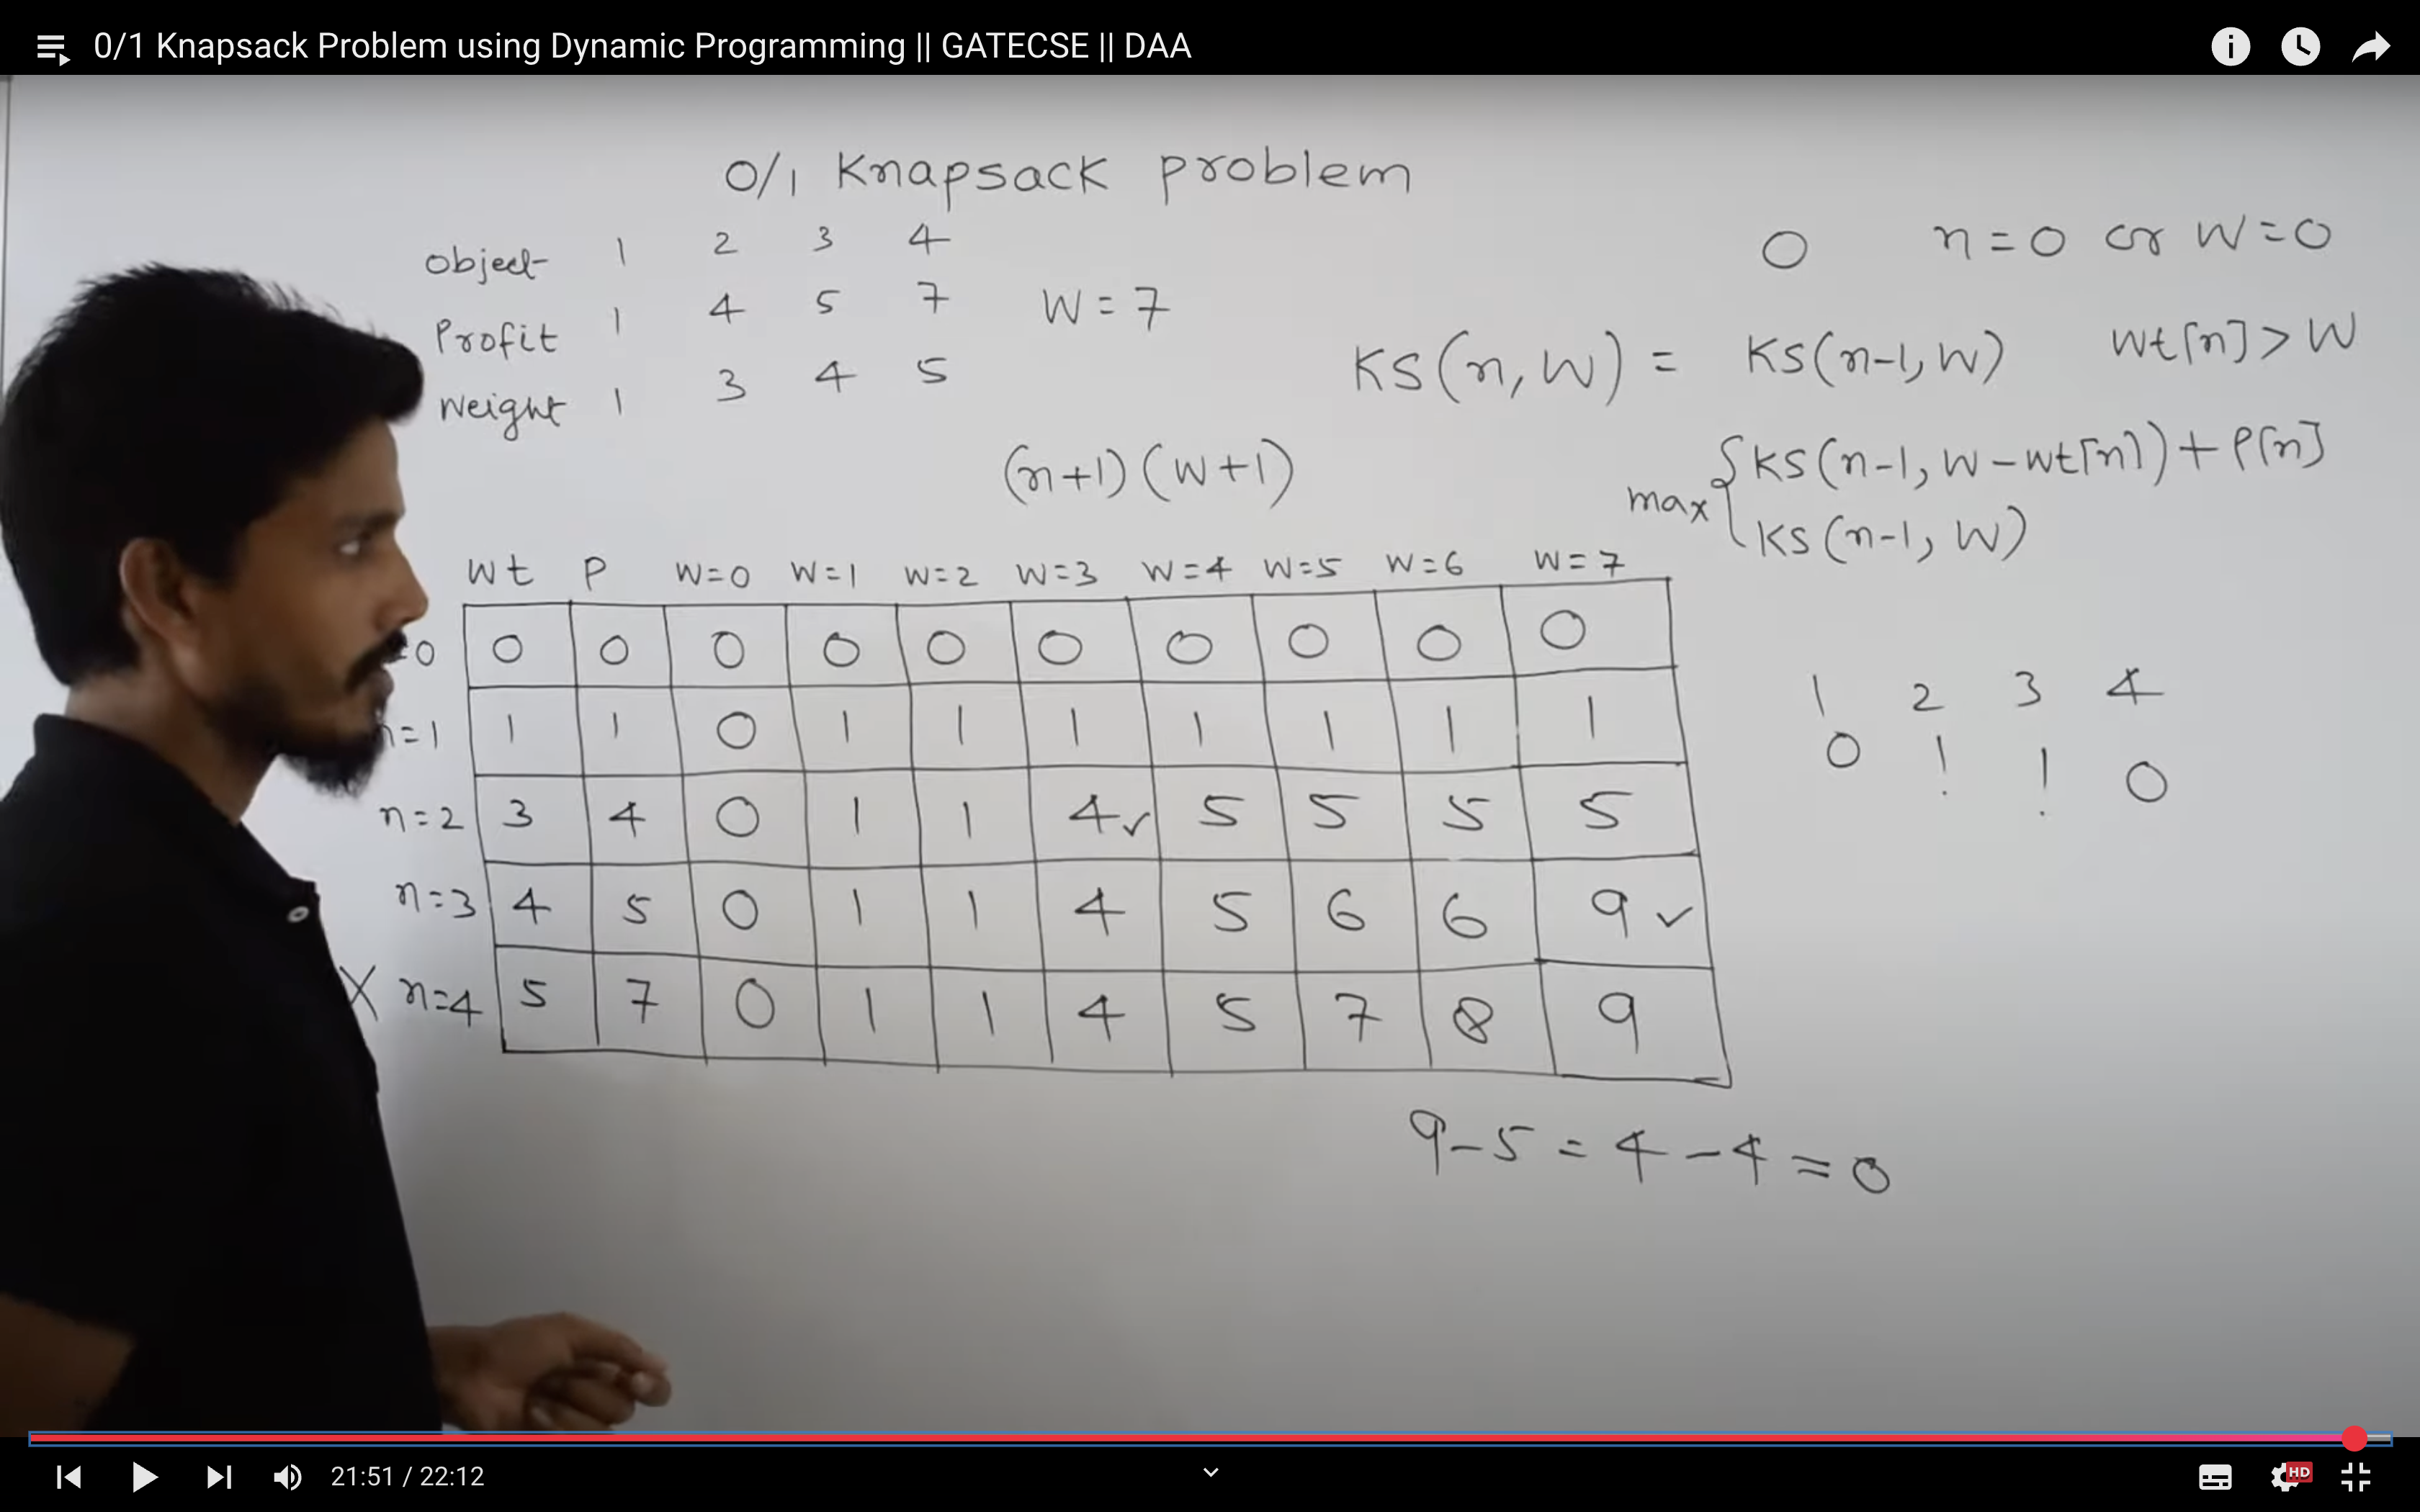 0/1 Knapsack Problem using Dynamic Programming || GATECSE || DAA
0/1 Knapsack problem
object 1 2 3 4
Profit 1 4 5 7 W = 7
Weight 1 3 4 5
0 n=0 or W=0
KS(n, W) = KS(n-1, W) wt[n] > W
max { KS(n-1, W-wt[n]) + P[n]
KS(n-1, W)
(n+1) (W+1)
Wt P W=0 W=1 W=2 W=3 W=4 W=5 W=6 W=7
=0 0 0 0 0 0 0 0 0 0 0
n=1 1 1 0 1 1 1 1 1 1 1
n=2 3 4 0 1 1 4✓ 5 5 5 5
n=3 4 5 0 1 1 4 5 6 6 9 ✓
X n=4 5 7 0 1 1 4 5 7 8 9
1 2 3 4
0 1 1 0
9-5 = 4-4 = 0
21:51 / 22:12
HD